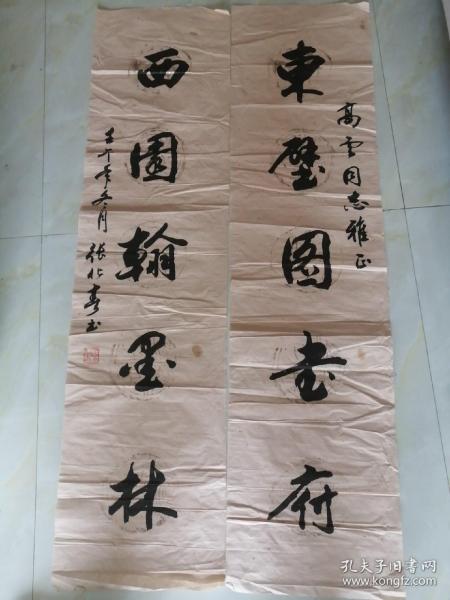 高云同志雅正
東壁圖書府
西園翰墨林
壬午年冬月 張北書书
孔夫子旧书网
www.kongfz.com